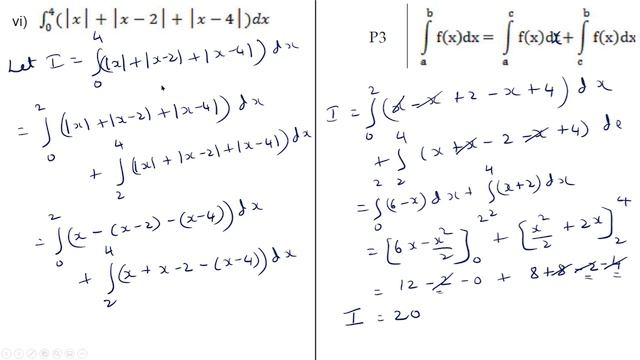 vi) ∫₀⁴(|x| + |x − 2| + |x − 4|)dx
Let I = ∫₀⁴ (|x| + |x-2| + |x-4|) dx
= ∫₀² (|x| + |x-2| + |x-4|) dx
+ ∫₂⁴ (|x| + |x-2| + |x-4|) dx
= ∫₀² (x - (x-2) - (x-4)) dx
+ ∫₂⁴ (x + x-2 - (x-4)) dx
P3 ∫ₐᵇ f(x)dx = ∫ₐᶜ f(x)dx + ∫꜀ᵇ f(x)dx
I = ∫₀² (x - x + 2 - x + 4) dx
+ ∫₂⁴ (x + x - 2 - x + 4) dx
= ∫₀² (6-x) dx + ∫₂⁴ (x+2) dx
= [6x - x²/2]₀² + [x²/2 + 2x]₂⁴
= 12 - 2 - 0 + 8 + 8 - 2 - 4
I = 20